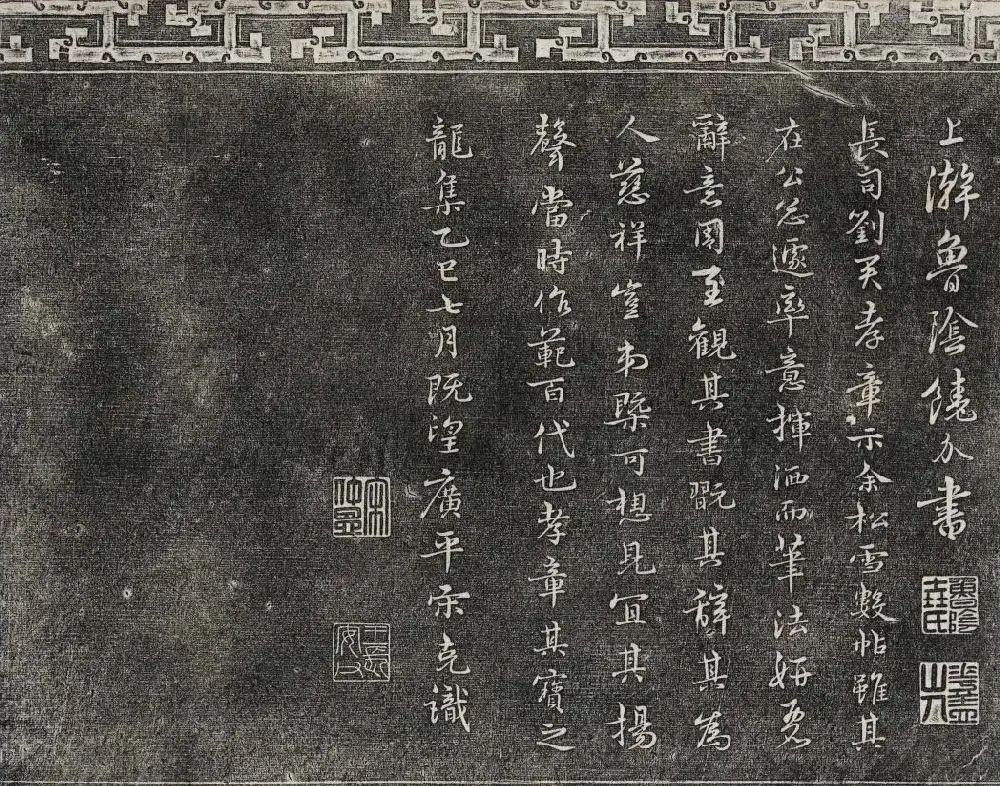 上澣魯陰饒介書
長司劉君孝章示余松雪數帖雖其
在公怱遽率意揮洒而筆法妍
辭意周至觀其書翫其辭其為
人慈祥豈弟槩可想見宜其揚
聲當時作範百代也孝章其寶之
龍集乙巳七月既望廣平宋克識